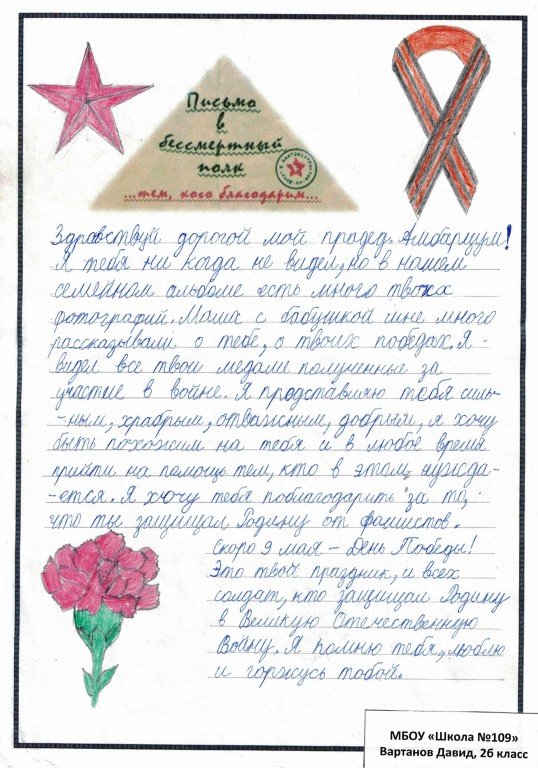 Письмо
в
бессмертный
полк
...тем, кого благодарим...
Здравствуй дорогой мой прадед Амбарцум!
Я тебя ни когда не видел, но в нашем
семейном альбоме есть много твоих
фотографий. Мама с бабушкой мне много
рассказывали о тебе, о твоих победах. Я
видел все твои медали полученные за
участие в войне. Я представляю тебя силь-
-ным, храбрым, отважным, добрым, я хочу
быть похожим на тебя и в любое время
прийти на помощь тем, кто в этом нужда-
-ется. Я хочу тебя поблагодарить за то,
что ты защищал Родину от фашистов.
Скоро 9 мая – День Победы!
Это твой праздник, и всех
солдат, кто защищал Родину
в Великую Отечественную
Войну. Я помню тебя, люблю
и горжусь тобой.
МБОУ «Школа №109»
Вартанов Давид, 2б класс